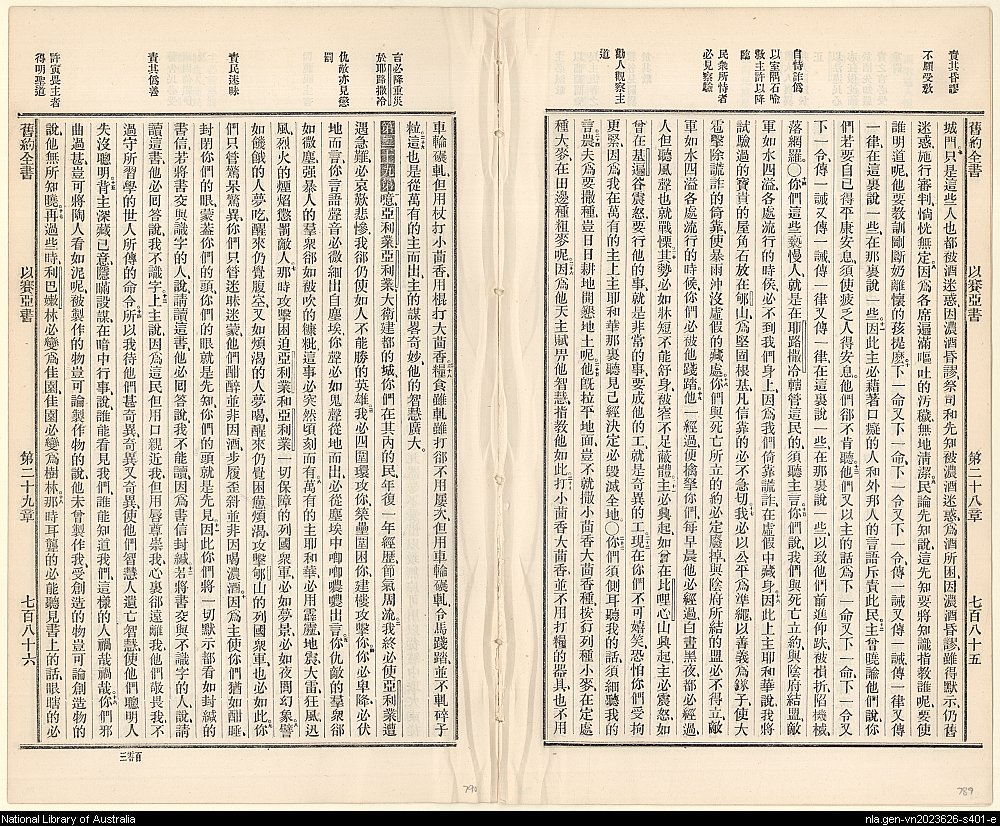 責其昏謬
不願受敎
自恃詐僞
以室隅石喻
救主許以降
臨
民衆所恃者
必見察驗
勸人觀察主
道
舊約全書 以賽亞書 第二十八章 七百八十五
城門只是這些人也都被酒迷惑因濃酒昏謬祭司和先知被濃酒迷惑爲酒所困因濃酒昏謬雖得默示仍舊
迷惑施行審判惝恍無定因爲各席遍滿嘔吐的汚穢無地淸潔民論先知說這先知要將知識指敎誰呢要使
誰明道呢他要敎訓剛斷奶離懷的孩提麽下一命又下一命下一令又下一令傳一誡又傳一誡傳一律又傳
一律在這裏說一些在那裏說一些因此主必藉著口癡的人和外邦人的言語斥責此民主曾曉諭他們說你
們若要自已得平康安息須使疲乏人得安息他們卻不肯聽他們又以主的話爲下一命又下一命下一令又
下一令傳一誡又傳一誡傳一律又傳一律在這裏說一些在那裏說一些以致他們前進仰跌被損折陷機械
落網羅〇你們這些褻慢人就是在耶路撒冷轄管這民的須聽主言你們說我們與死亡立約與陰府結盟敵
軍如水四溢各處流行的時侯必不到我們身上因爲我們倚靠謊詐在虛假中藏身因此上主耶和華說我將
試驗過的寶貴的屋角石放在郇山爲堅固根基凡信靠的必不急切我必以公平爲準繩以善義爲鎵子使大
雹擊除謊詐的倚靠使暴雨沖沒虛假的藏處你們與死亡所立的約必定廢掉與陰府所結的盟必不得立敵
軍如水四溢各處流行的時候你們必被他踐踏他一經過便擒拏你們每早晨他必經過白晝黑夜都必經過
人但聽風聲也就戰慄其勢必如牀短不能舒身被窄不足蔽體主必興起如曾在比哩心山興起主必震怒如
曾在基遍谷震怒要行他的事就是非常的事要成他的工就是奇異的工現在你們不可嬉笑恐怕你們受拘
更緊因爲我在萬有的主上主耶和華那裏聽見已經決定必毀滅全地〇你們須側耳聽我的話須細聽我的
言農夫爲要撒種豈日日耕地開懇地土呢他旣拉平地面豈不就撒小茴香大茴香種按行列種小麥在定處
種大麥在田邊種粗麥呢因爲他天主賦畀他智慧指敎他如此打小茴香大茴香並不用打糧的器具也不用
789
言必降重災
於耶路撒冷
仇敵亦見懲
罰
責民迷昧
責其僞善
許寅畏主者
得明聖道
車輪碾軋但用杖打小茴香用棍打大茴香糧食雖軋雖打卻不用屢次但用車輪碾軋令馬踐踏並不軋碎子
粒這也是從萬有的主而出主的謀畧奇妙他的智慧廣大
第二十九章噫亞利業亞利業大衛建都的城你們在其內的民年復一年經歷節氣周流我終必使亞利業遭
遇急難必哀歎悲慘我卻仍使如人不能勝的英雄我必四圍環攻你築壘圍困你建棱攻擊你你必卑降必伏
地而言你言語聲音必微細出自塵埃你聲必如鬼聲從地而出必從塵埃中唧唧囔囔出言你仇敵的羣衆卻
如微塵强暴人的羣衆卻如被吹的糠粃這事必突然頃刻而有萬有的主耶和華必用霹靂地震大雷狂風迅
風烈火的煙焰懲罰敵人那時攻擊困迫亞利業和亞利業一切保障的列國衆軍必如夢景必如夜間幻象譬
如饑餓的人夢吃醒來仍覺腹空又如煩渴的人夢喝醒來仍覺困憊煩渴攻擊郇山的列國衆軍也必如此你
們只管驚呆驚異你們只管迷昧迷蒙他們酣醉並非因酒步履歪斜並非因喝濃酒因爲主使你們猶如酣睡
封閉你們的眼蒙蓋你們的頭你們的眼就是先知你們的頭就是先見因此你們將一切默示都看如封緘的
書信若將書交與識字的人說請讀這書他必回答說我不能讀因爲書信封緘若將書交與不識字的人說請
讀這書他必回答說我不識字上主說因爲這民但用口親近我但用唇尊崇我心裏卻遠離我他們敬畏我不
過守所習學的世人所傳的命令所以我待他們甚奇異奇異又奇異使他們智慧人遺亡智慧使他們聰明人
失沒聰明背主深藏已意隱瞞設謀在暗中行事說誰能看見我們誰能知道我們這樣的人禍哉禍哉你們邪
曲過甚豈可將陶人看如泥呢被製作的物豈可論製作物的說他未曾製作我受創造的物豈可論創造物的
說他無所知曉再過些時利巴嫩林必變爲佳園佳園必變爲樹林那時耳聾的必能聽見書上的話眼瞎的必
舊約全書 以賽亞書 第二十九章 七百八十六
三零百
790
National Library of Australia
nla.gen-vn2023626-s401-e